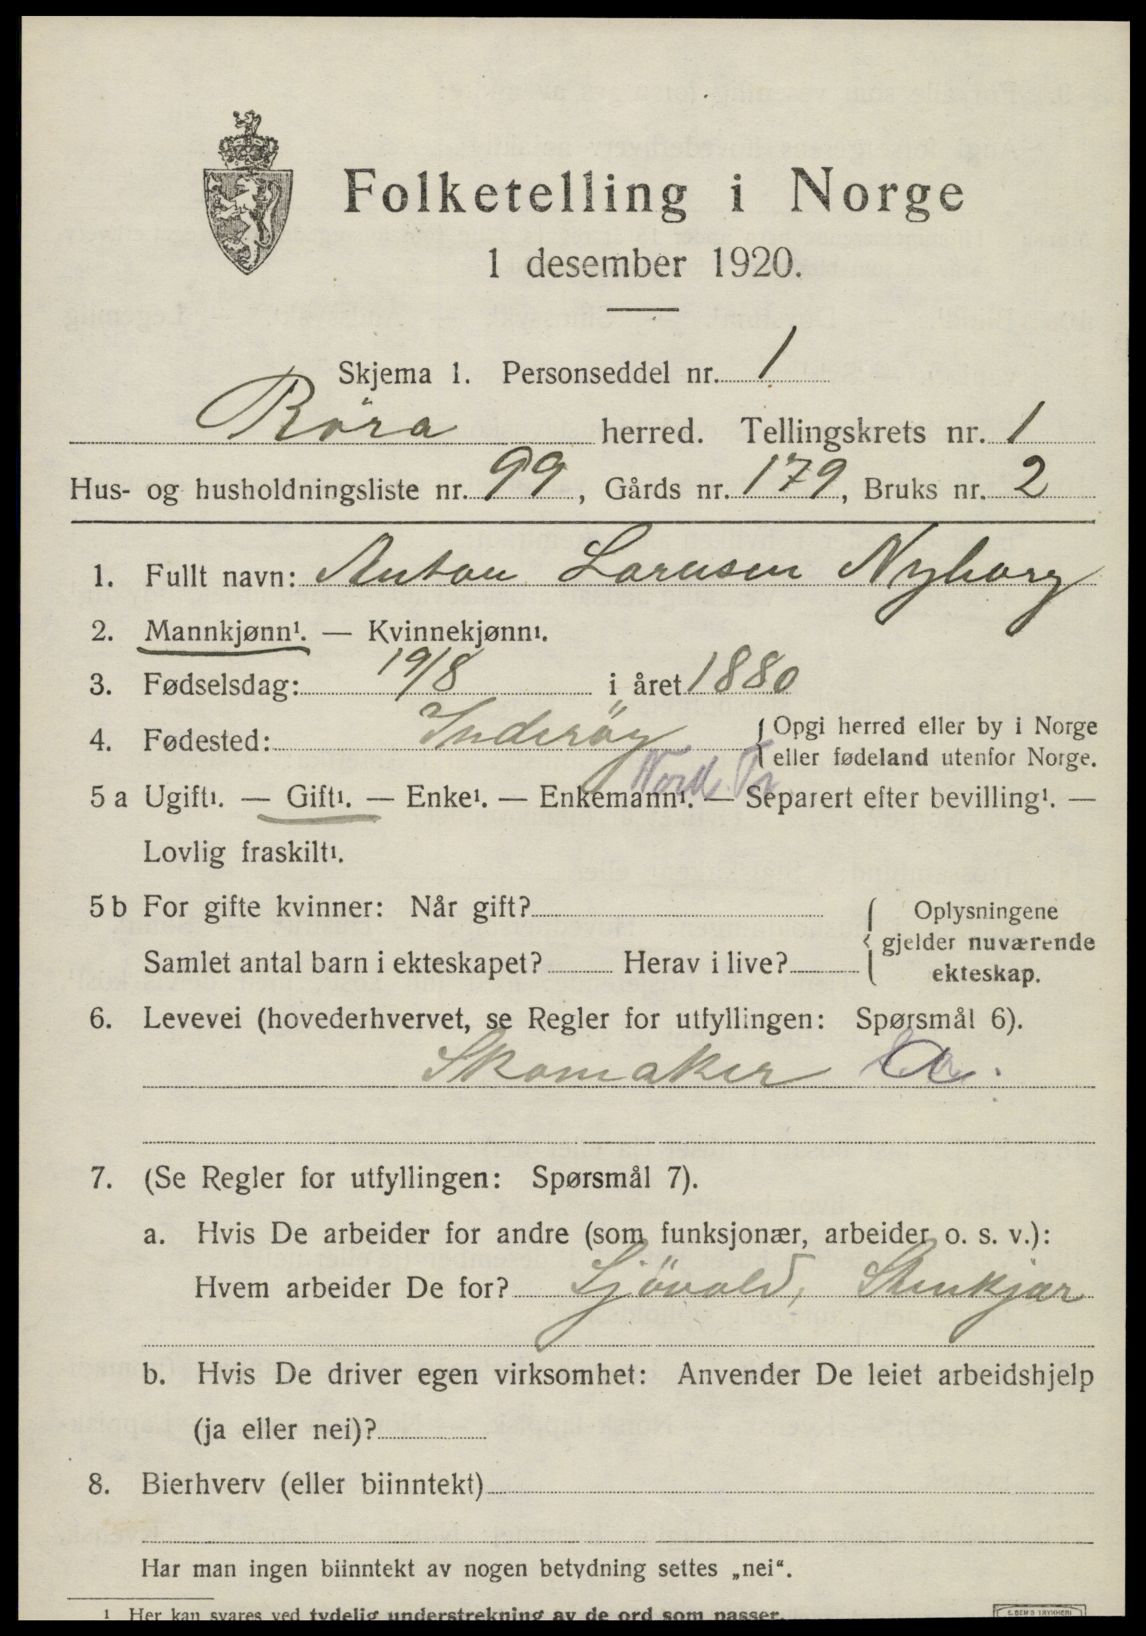 Folketelling i Norge
1 desember 1920.
Skjema 1. Personseddel nr. 1
Röra herred. Tellingskrets nr. 1
Hus- og husholdningsliste nr. 99, Gårds nr. 179, Bruks nr. 2
1. Fullt navn: Anton Lornsen Nyborg
2. Mannkjønn¹. — Kvinnekjønn¹.
3. Fødselsdag: 19/8 i året 1880
4. Fødested: Inderöy { Opgi herred eller by i Norge
eller fødeland utenfor Norge.
Nord Tr
5 a Ugift¹. — Gift¹. — Enke¹. — Enkemann¹. — Separert efter bevilling¹. —
Lovlig fraskilt¹.
5 b For gifte kvinner: Når gift? { Oplysningene
gjelder nuværende
ekteskap.
Samlet antal barn i ekteskapet? Herav i live?
6. Levevei (hovederhvervet, se Regler for utfyllingen: Spørsmål 6).
Skomaker a.
7. (Se Regler for utfyllingen: Spørsmål 7).
a. Hvis De arbeider for andre (som funksjonær, arbeider o. s. v.):
Hvem arbeider De for? Sjövold, Stenkjær
b. Hvis De driver egen virksomhet: Anvender De leiet arbeidshjelp
(ja eller nei)?
8. Bierhverv (eller biinntekt)
Har man ingen biinntekt av nogen betydning settes „nei“.
¹ Her kan svares ved tydelig understrekning av de ord som passer.